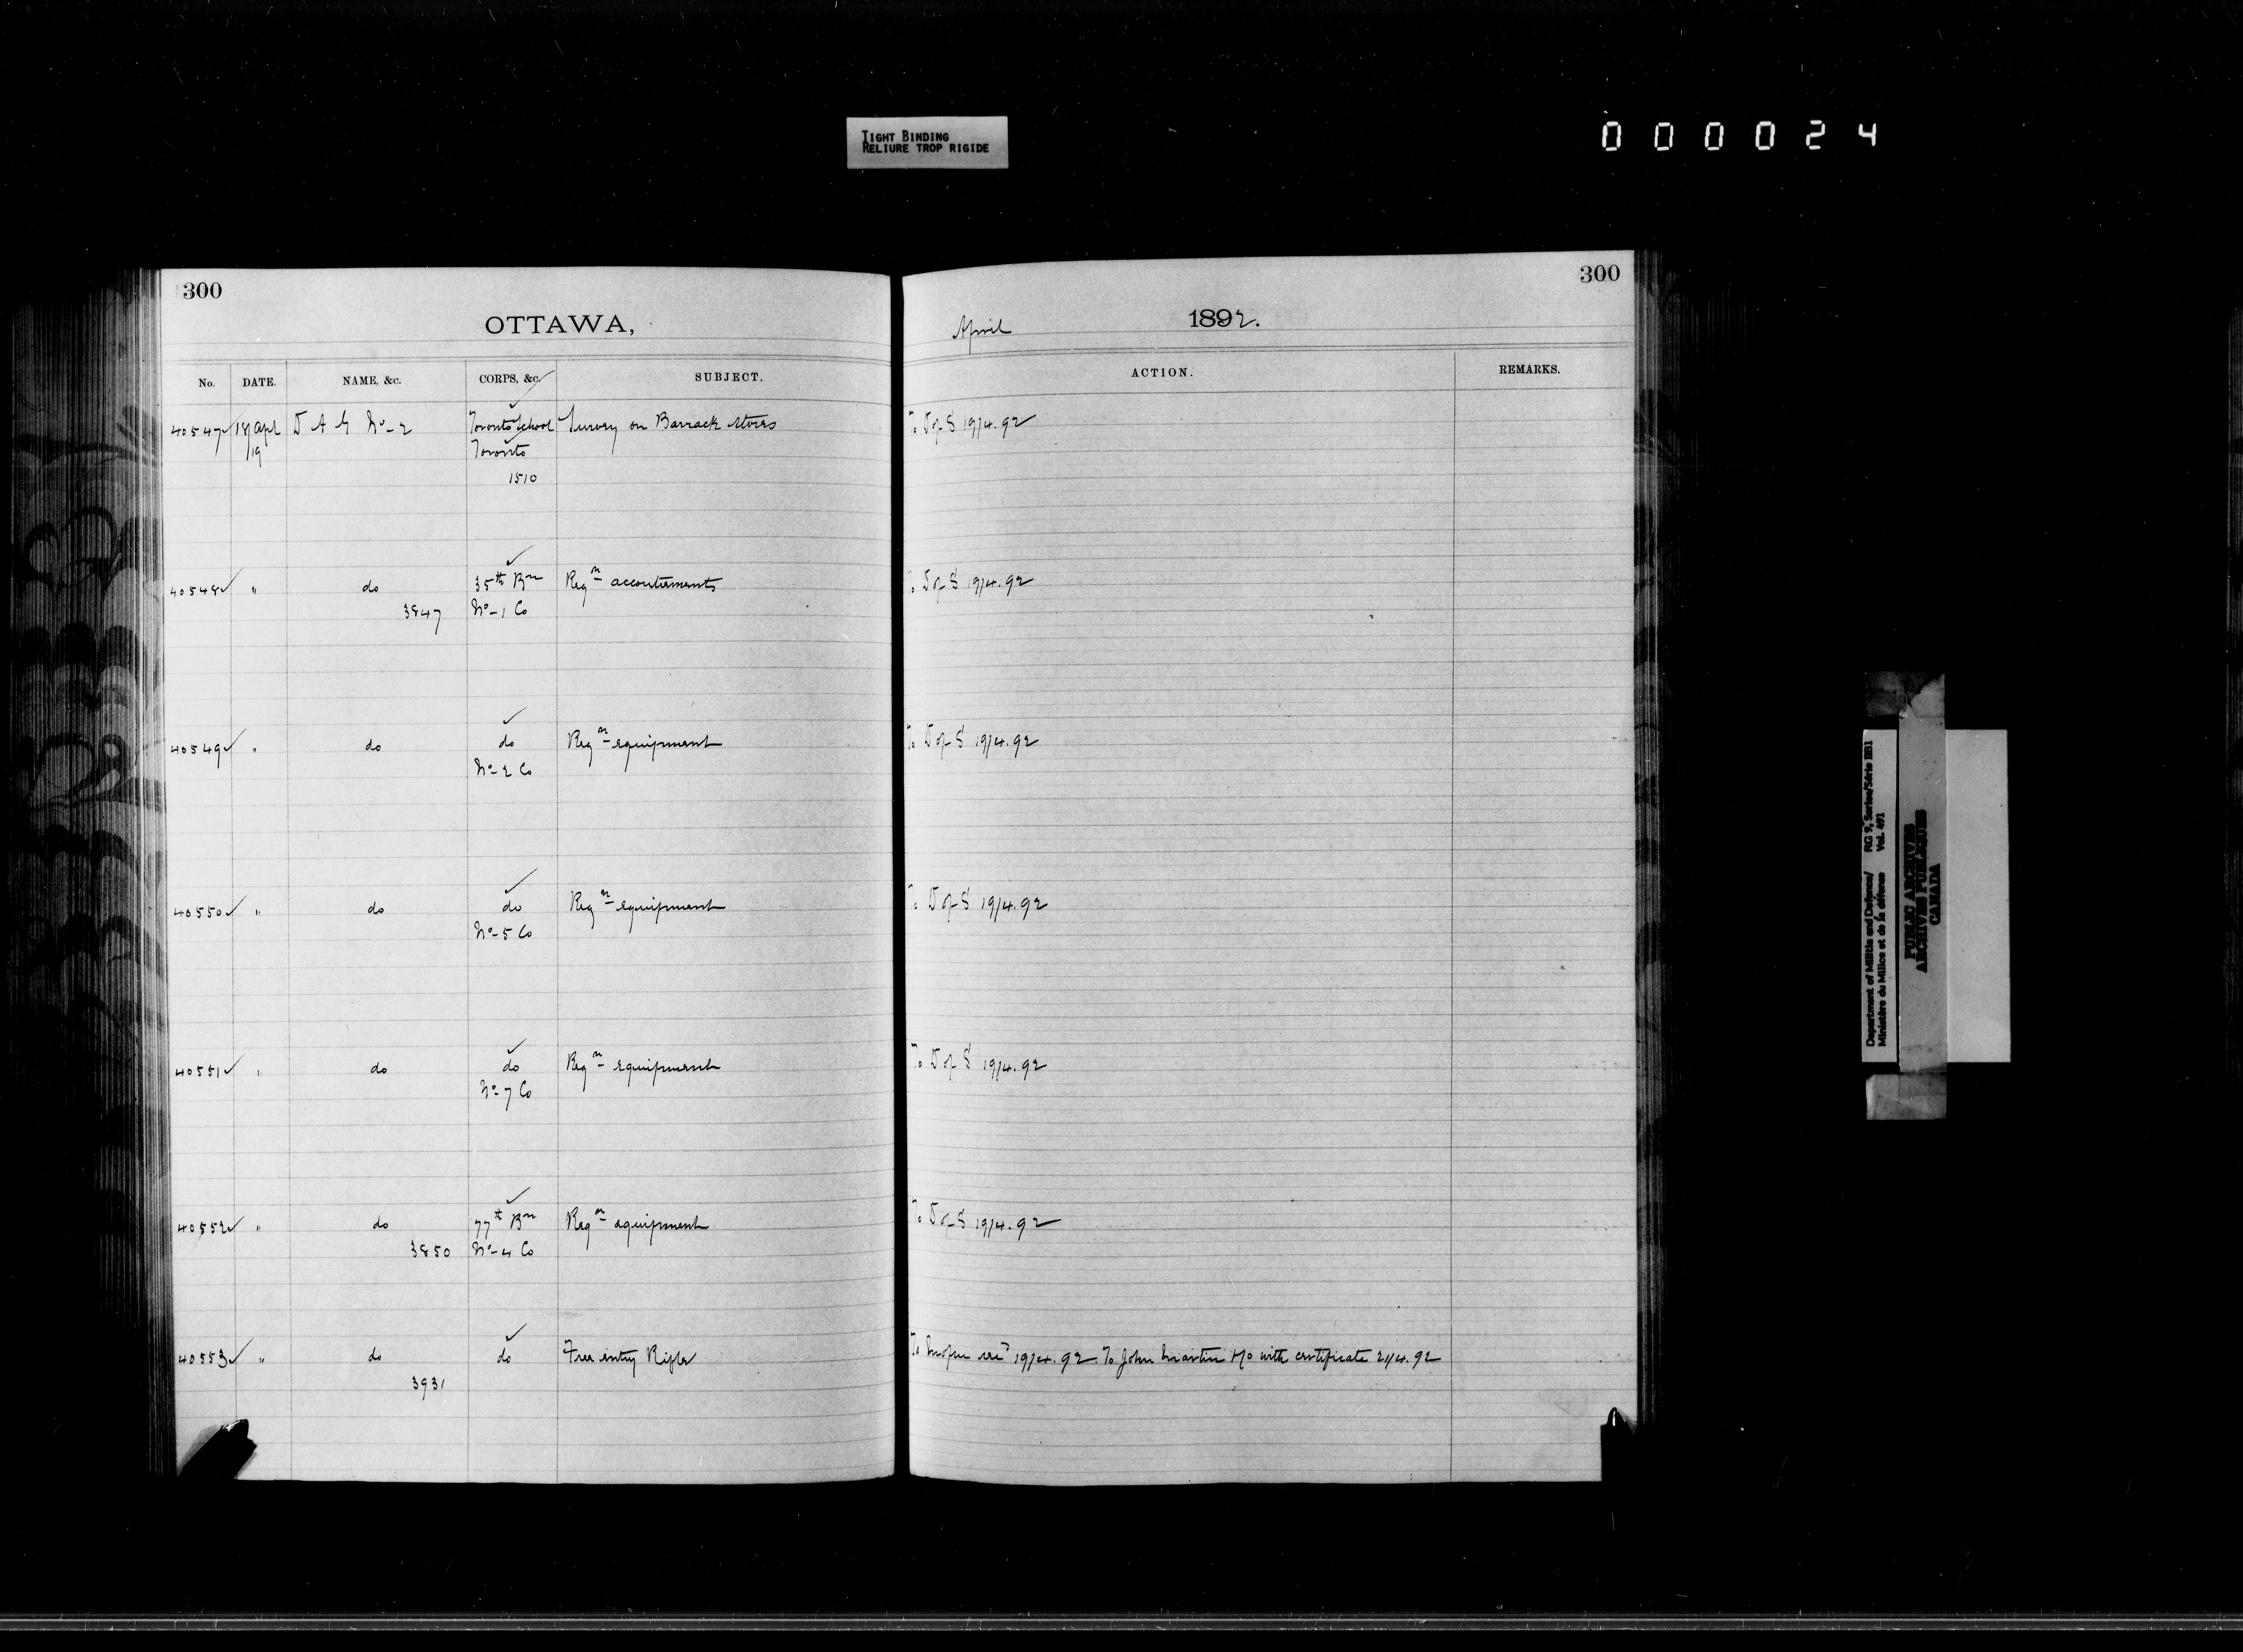 TIGHT BINDING
RELIURE TROP RIGIDE
000024
300
OTTAWA,
No. DATE. NAME, &c. CORPS, &c. SUBJECT.
40547✓ 18/19 Apl D A G No-2 Toronto School Survey on Barrack Stores
Toronto
1510
40548✓ " do 35th Bn Reqn accoutrements
3847 No-1 Co
40549✓ " do do Reqn equipment
No-2 Co
40550✓ " do do Reqn equipment
No-5 Co
40551✓ " do do Reqn equipment
No-7 Co
40552✓ " do 77th Bn Reqn equipment
3850 No-4 Co
40553✓ " do do Free entry Rifles
3931
300
April 1892.
ACTION. REMARKS.
To D of S 19/4.92
To D of S 19/4.92
To D of S 19/4.92
To D of S 19/4.92
To D of S 19/4.92
To D of S 19/4.92
19/4.92. To John Martin with certificate 21/4.92
Department of Militia and Defence/ RG 9, Series/Série IIB1
Ministère du Milice et de la défense Vol. 491
PUBLIC ARCHIVES
ARCHIVES PUBLIQUES
CANADA